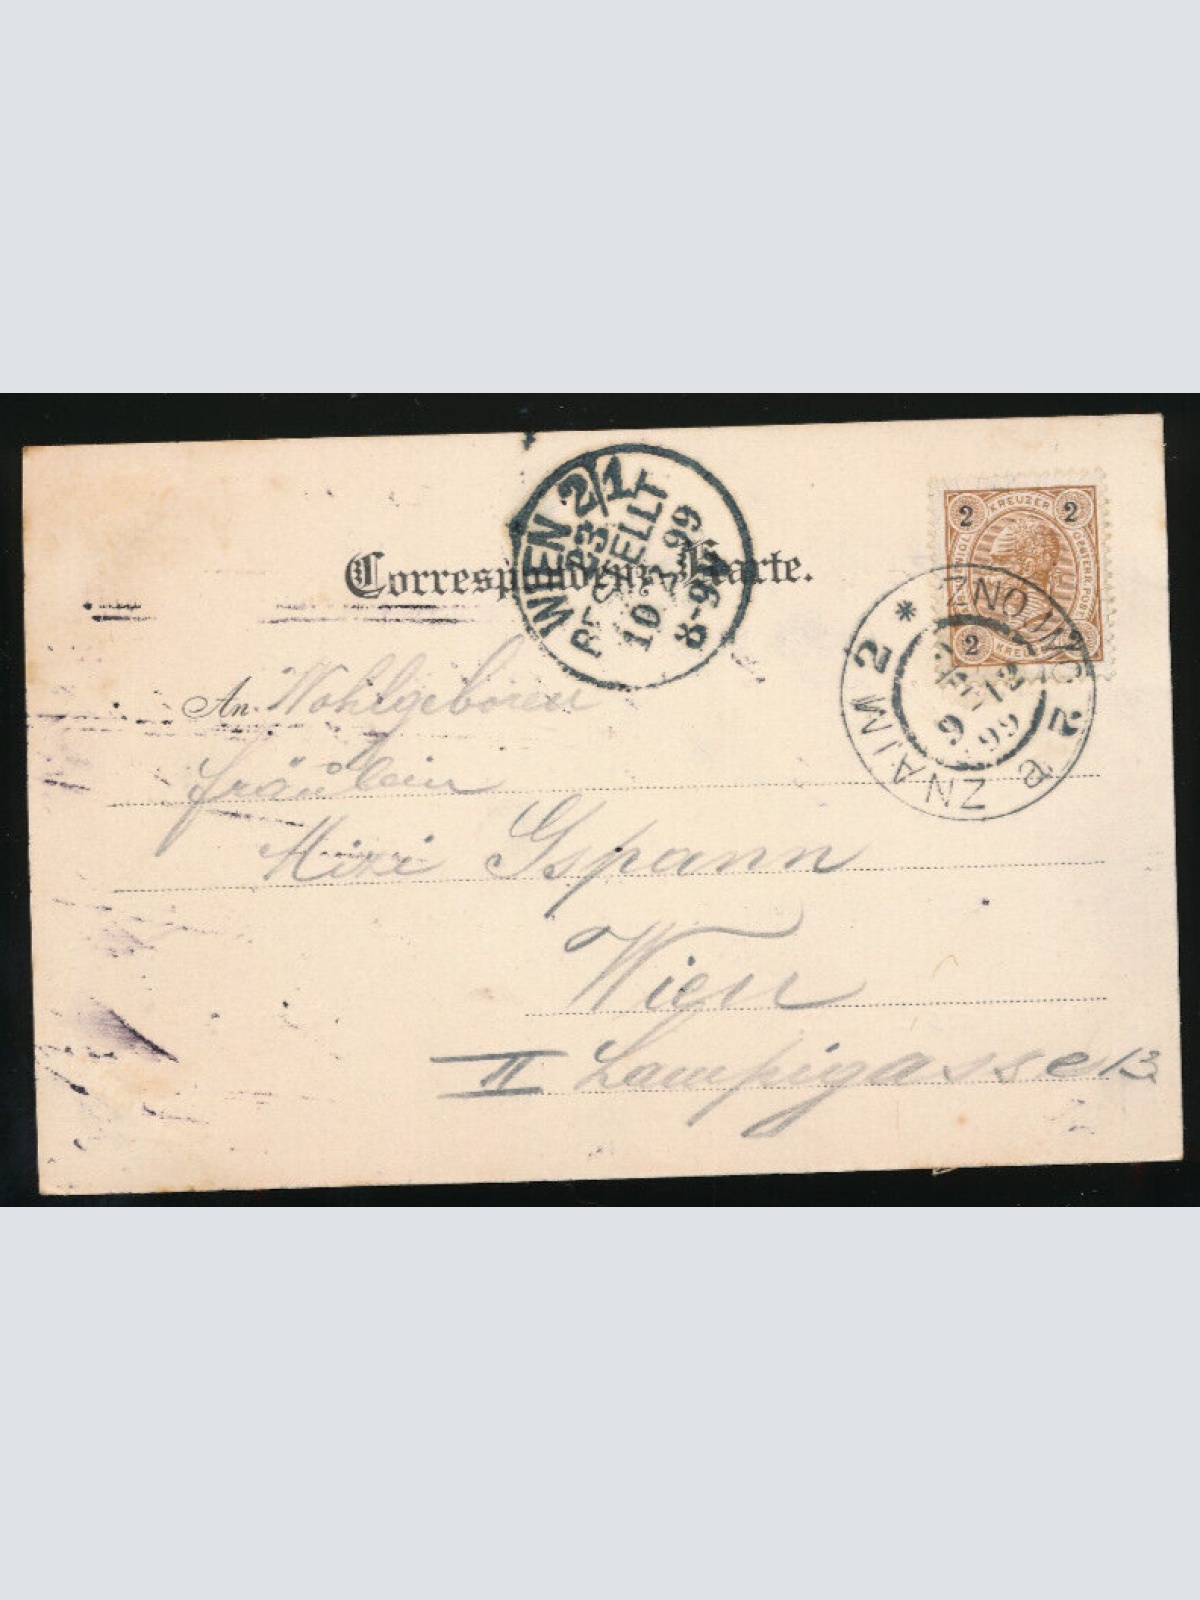 Correspondenz-Karte.
WIEN 2/1
BESTELLT
10
99
8-9
2 KREUZER 2
2
ZNAJM 2 ZNOJMO 2
9
12
99
An Wohlgeboren
Fräulein
Mizi Gspann
Wien
II